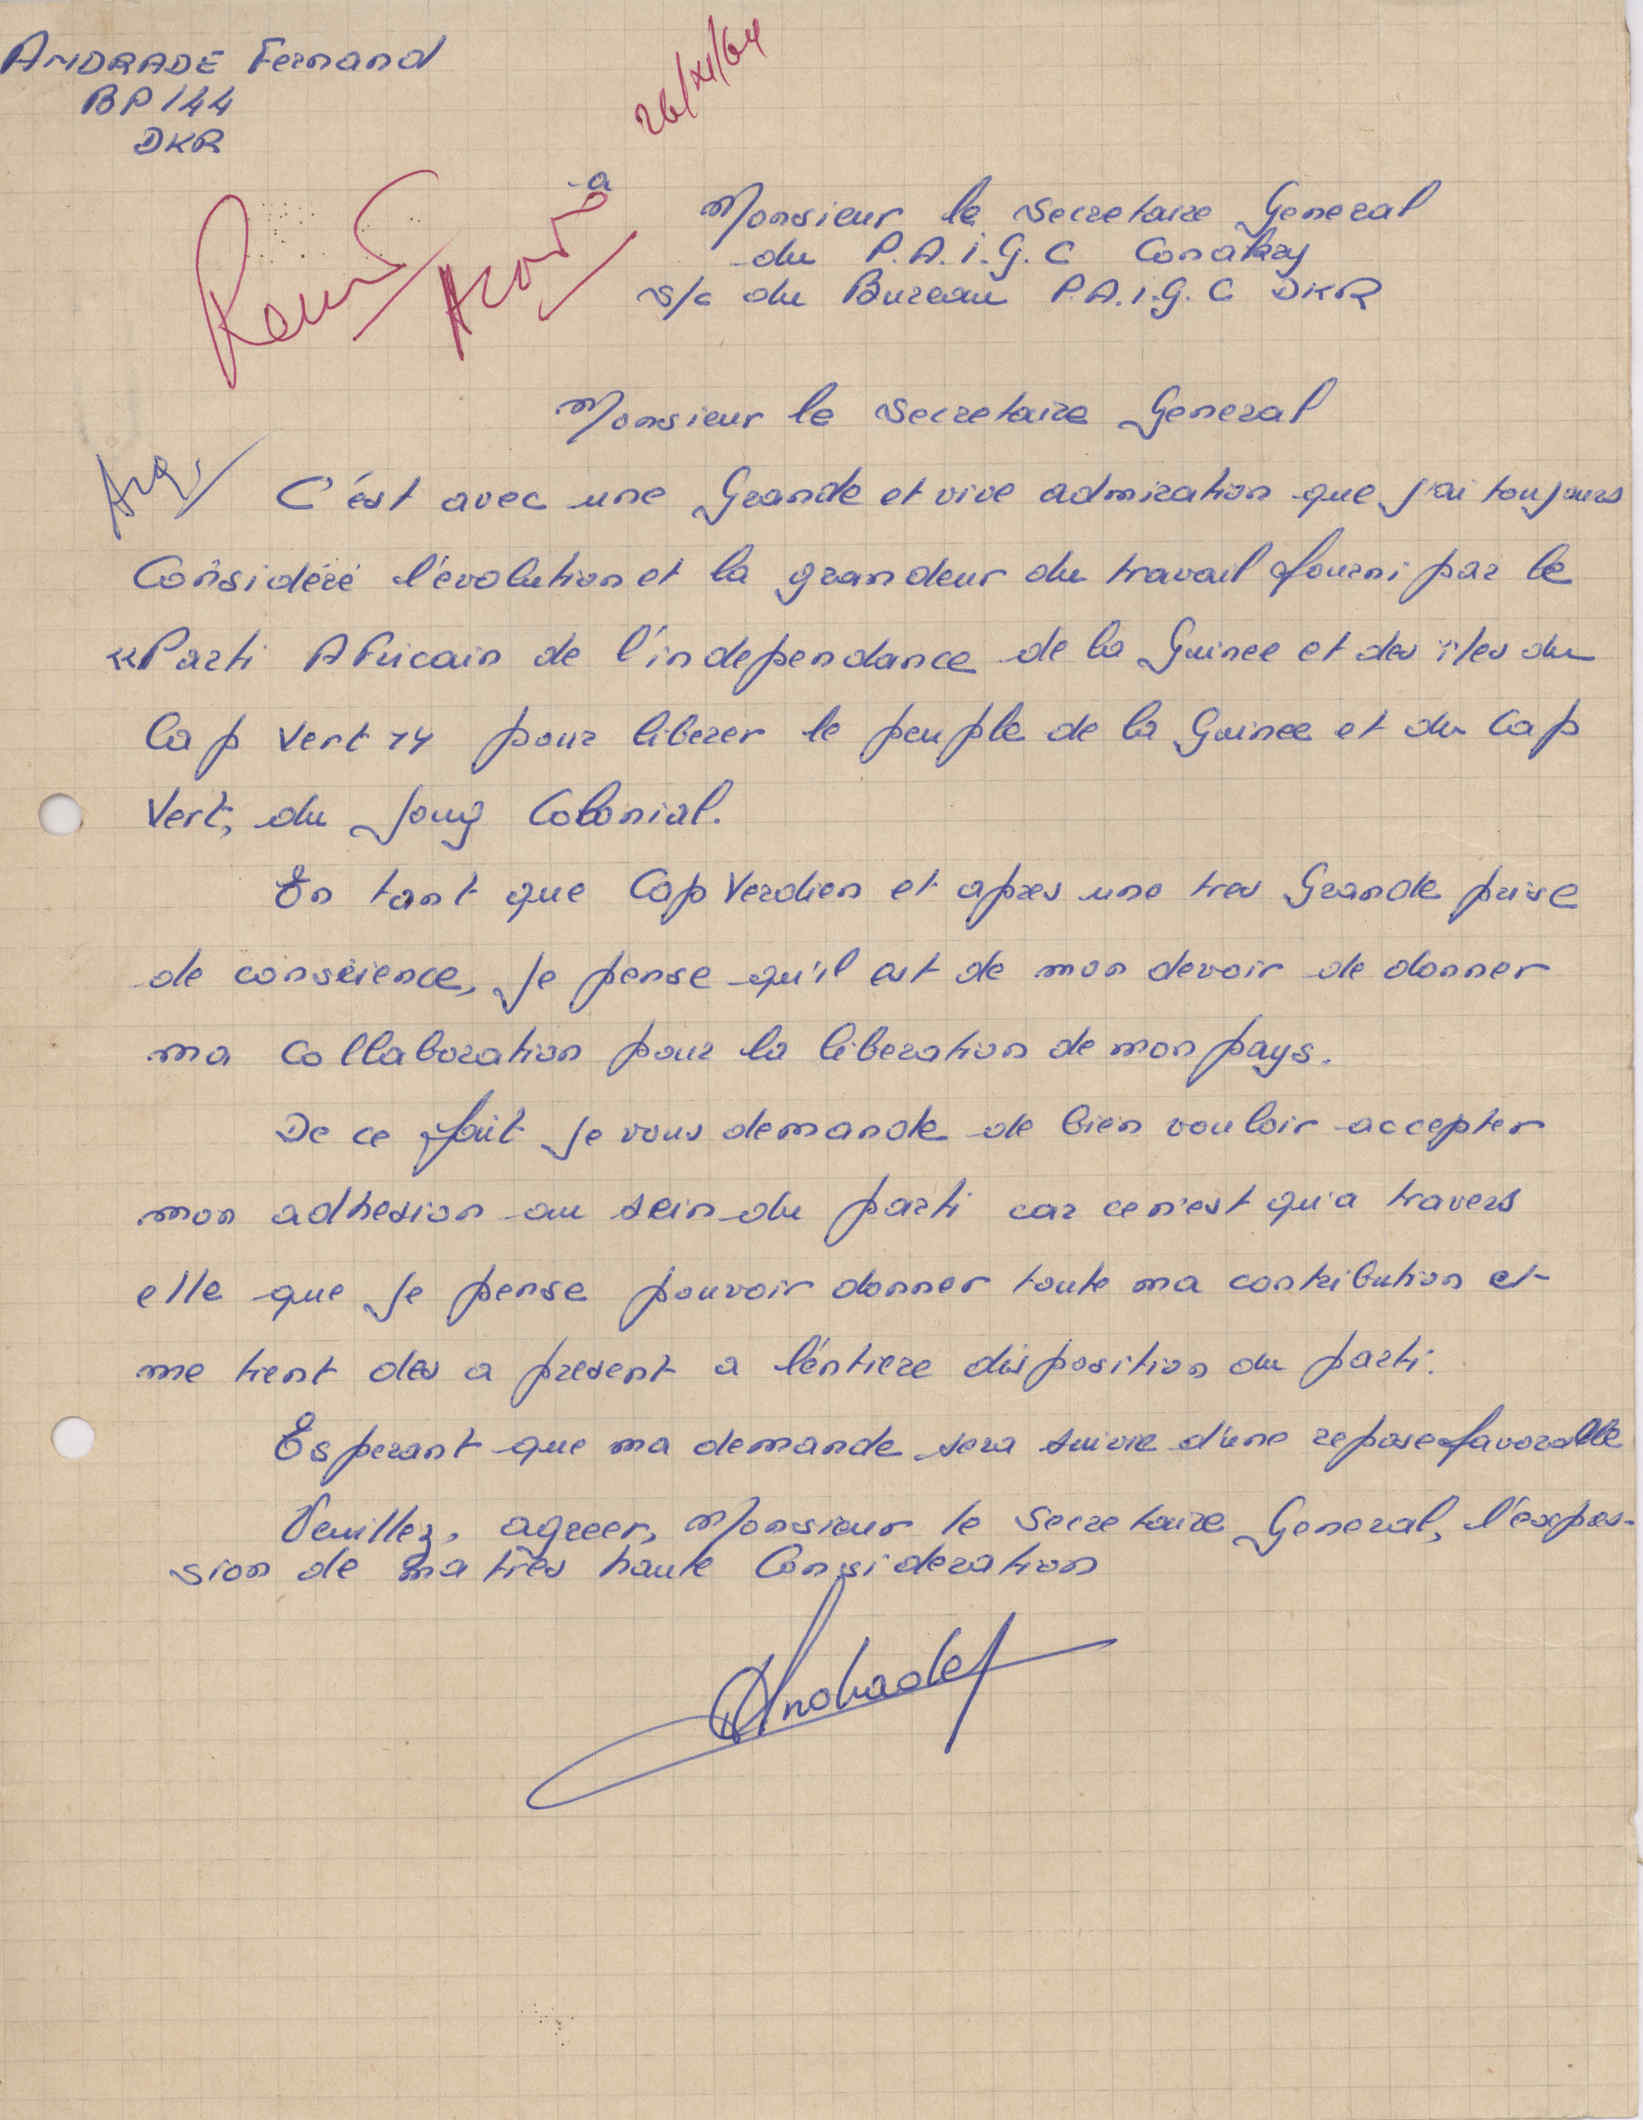 ANDRADE Fernand
BP 144
DKR
26/XI/64
a
Monsieur le Secretaire General
du P.A.i.G.C Conakry
S/c du Bureau P.A.i.G.C DKR
Monsieur le Secretaire General
C'ést avec une Grande et vive admiration que j'ai toujours
Considéré l'évolution et la grandeur du travail fourni par le
"Parti Africain de l'independance de la Guinee et des îles du
Cap Vert" pour liberer le peuple de la Guinee et du Cap
Vert, du Joug Colonial.
En tant que Cap Verdien et apres une tres Grande prise
de conscience, Je pense qu'il est de mon devoir de donner
ma Collaboration pour la liberation de mon pays.
De ce fait Je vous demande de bien vouloir accepter
mon adhesion au sein du parti car ce n'est qu'a travers
elle que Je pense pouvoir donner toute ma contribution et
me tient des a present a l'éntiere disposition du parti.
Esperant que ma demande sera suivie d'une repose favorable
Veuillez, agreer, Monsieur le Secretaire General, l'expres-
sion de ma très haute Consideration
Andrade